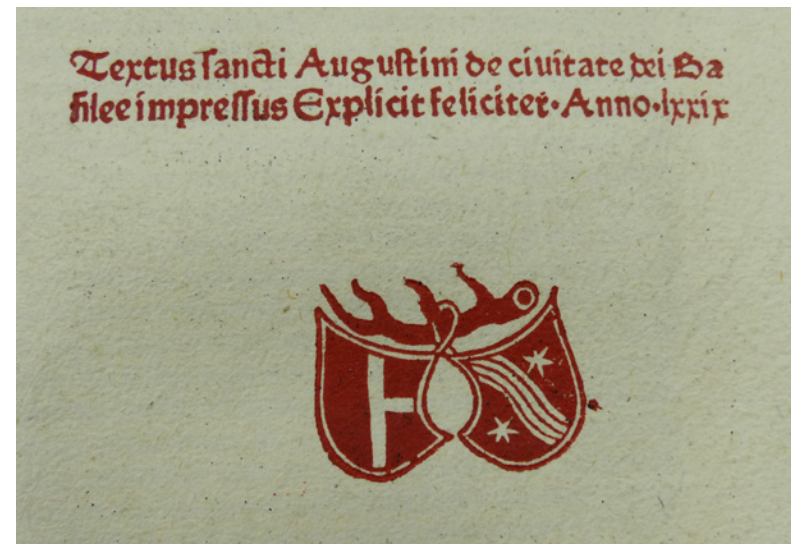 Textus sancti Augustini de ciuitate dei Ba
silee impressus Explicit feliciter·Anno·lxxix